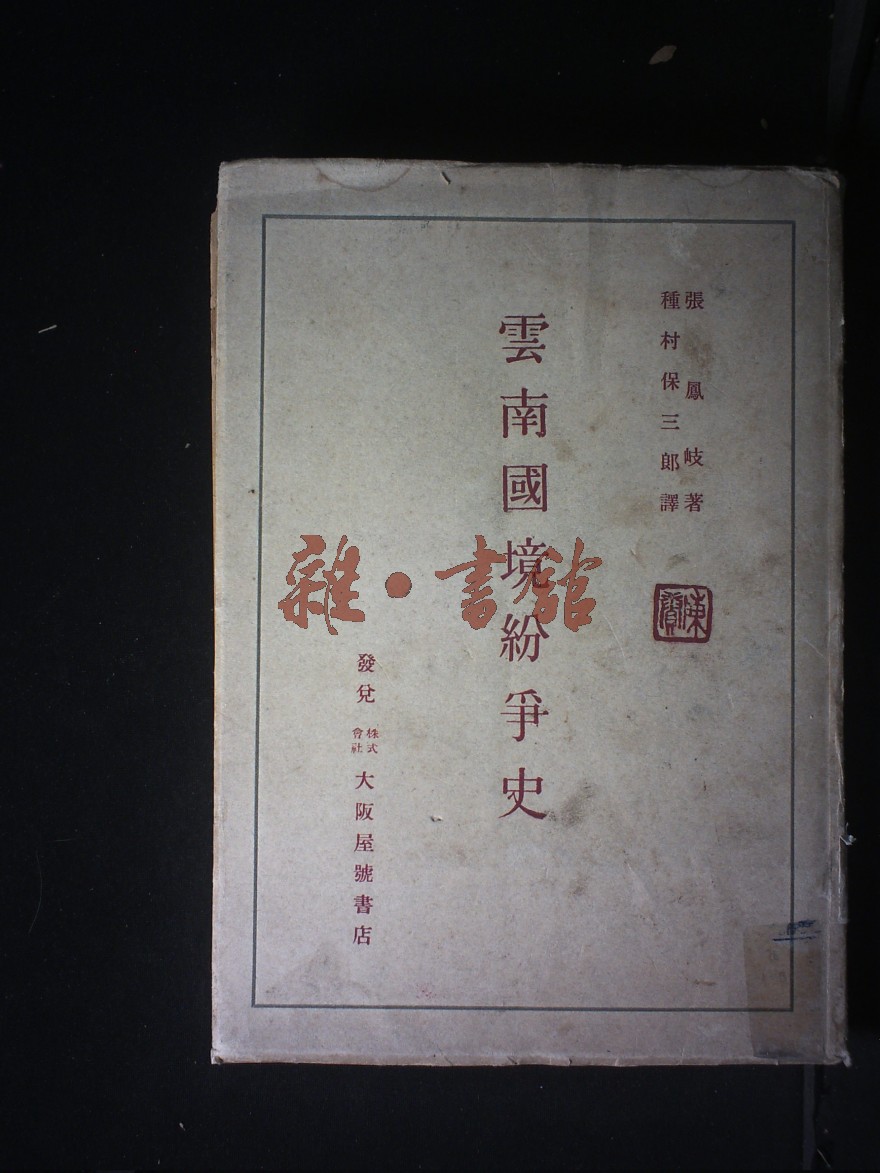 張鳳岐著
種村保三郎譯
雲南國境紛爭史
發兌 株式會社 大阪屋號書店
雜·書館